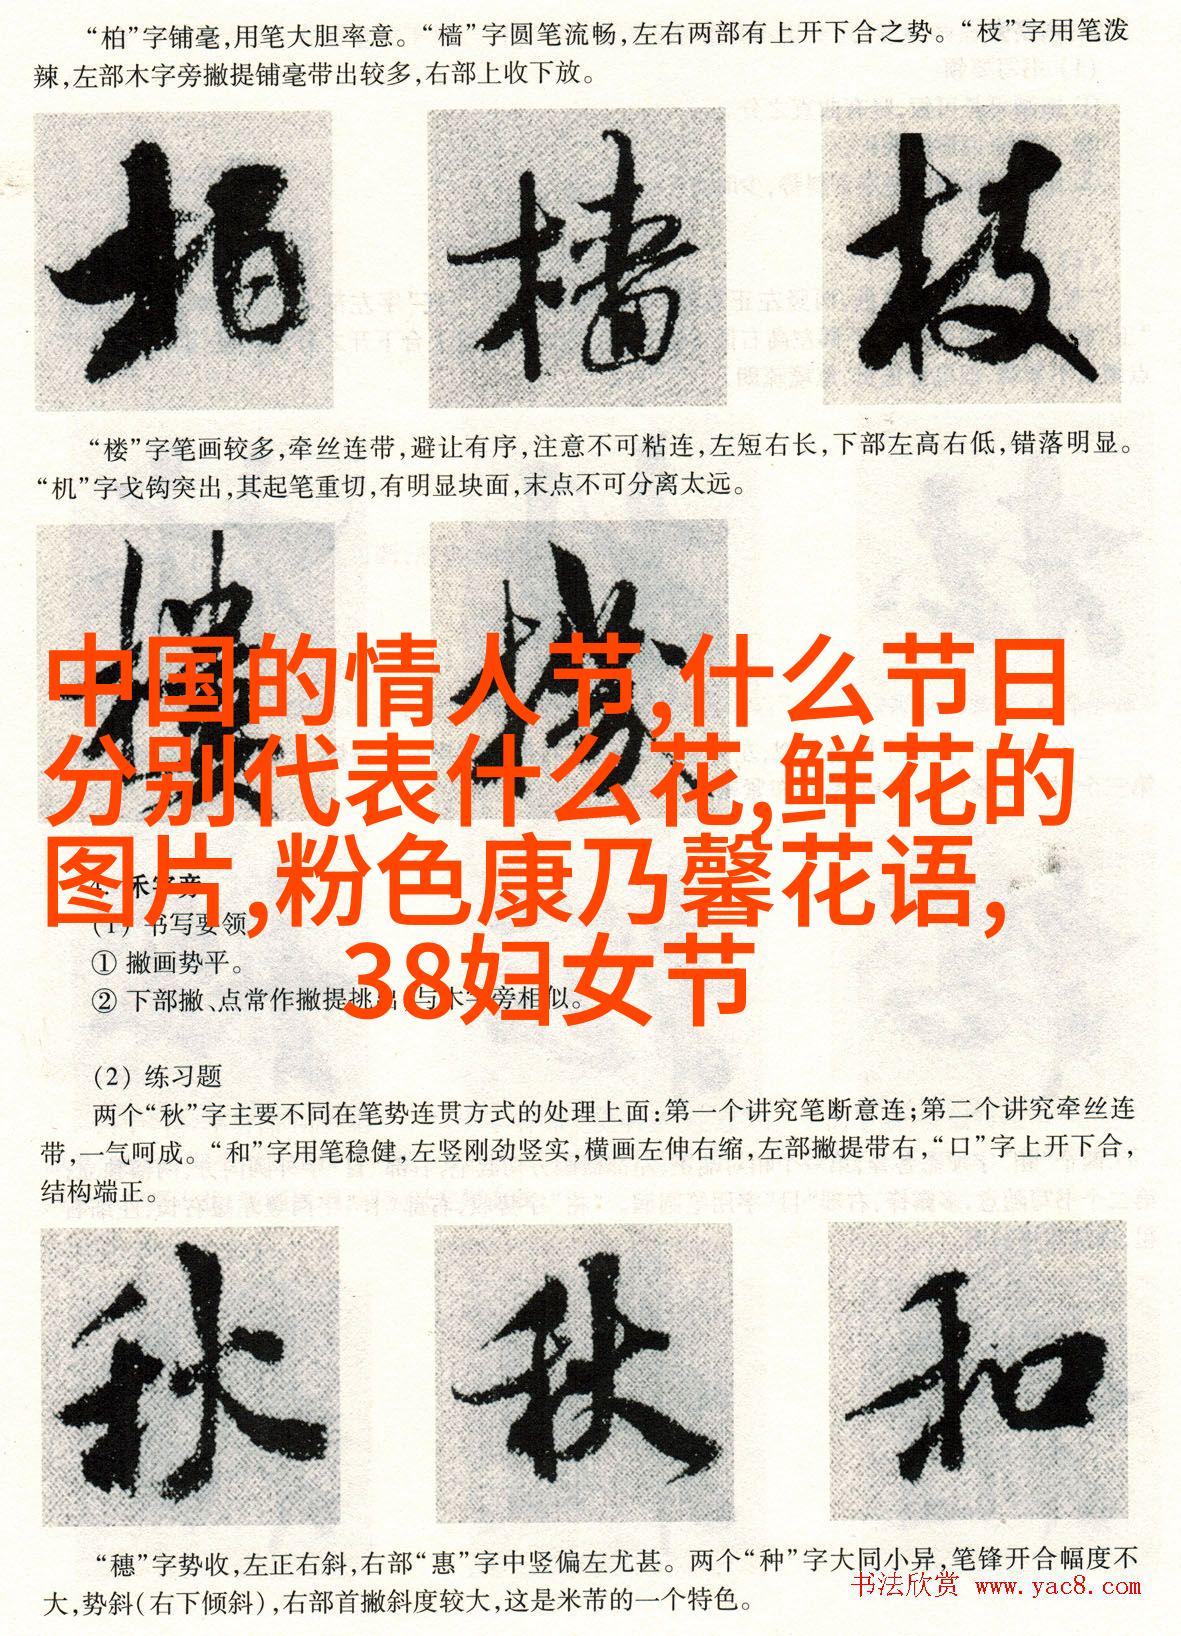 “柏”字铺毫,用笔大胆率意。“樯”字圆笔流畅,左右两部有上开下合之势。“枝”字用笔泼
辣,左部木字旁撇提铺毫带出较多,右部上收下放。
柏 樯 枝
“楼”字笔画较多,牵丝连带,避让有序,注意不可粘连,左短右长,下部左高右低,错落明显。
“机”字戈钩突出,其起笔重切,有明显块面,末点不可分离太远。
中国的情人节,什么节日
分别代表什么花,鲜花的
图片,粉色康乃馨花语,
38妇女节
禾字旁
(1) 书写要领
① 撇画势平。
② 下部撇、点常作撇提挑出,与木字旁相似。
(2) 练习题
两个“秋”字主要不同在笔势连贯方式的处理上面:第一个讲究笔断意连;第二个讲究牵丝连
带,一气呵成。“和”字用笔稳健,左竖刚劲竖实,横画左伸右缩,左部撇提带右,“口”字上开下合,
结构端正。
秋 秋 和
“穗”字势收,左正右斜,右部“惠”字中竖偏左尤甚。两个“种”字大同小异,笔锋开合幅度不
大,势斜(右下倾斜),右部首撇斜度较大,这是米芾的一个特色。
书法欣赏 www.yac8.com